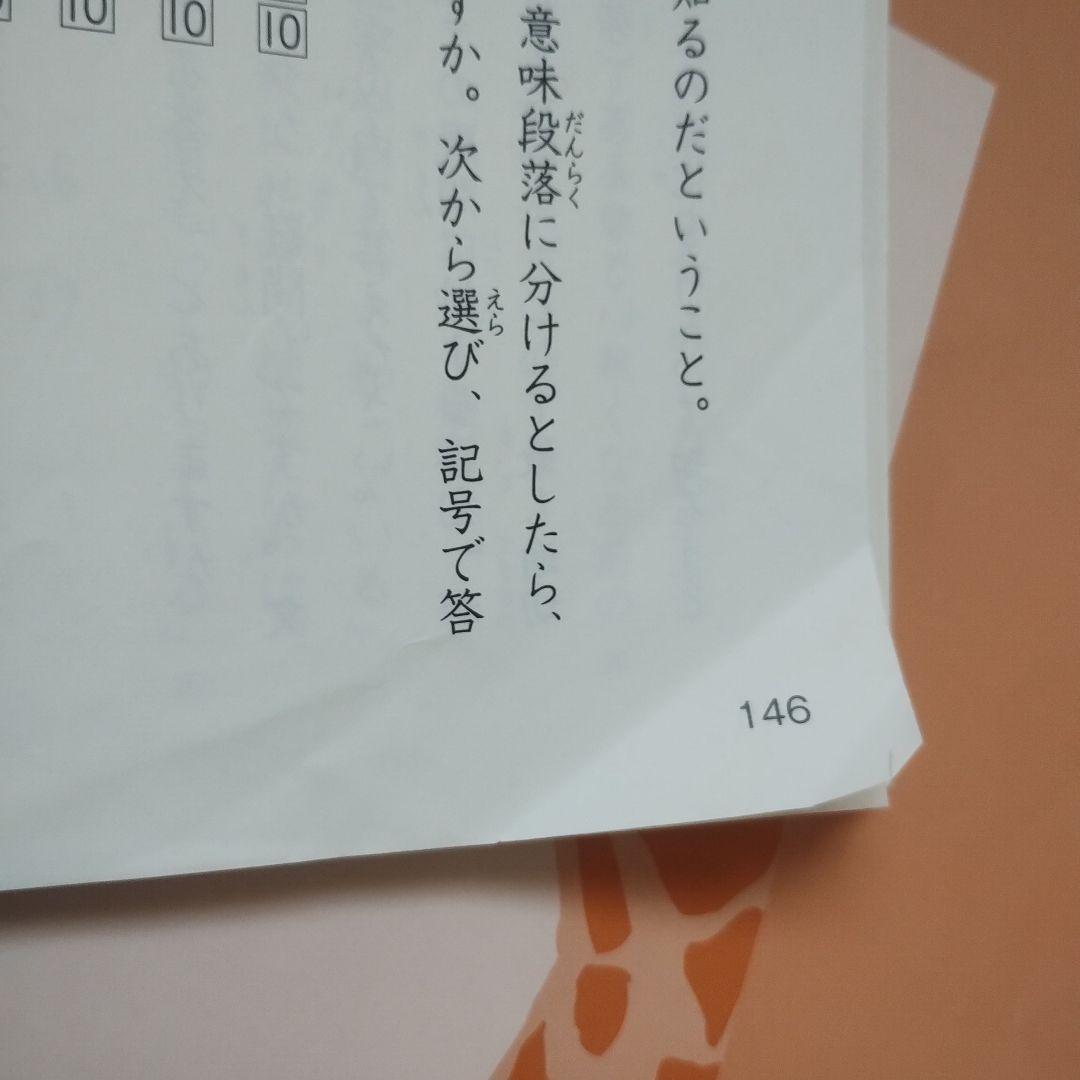 知るのだということ。
意味段落に分けるとしたら、
だんらく
すか。次から選び、記号で答
えら
10
10
10
146